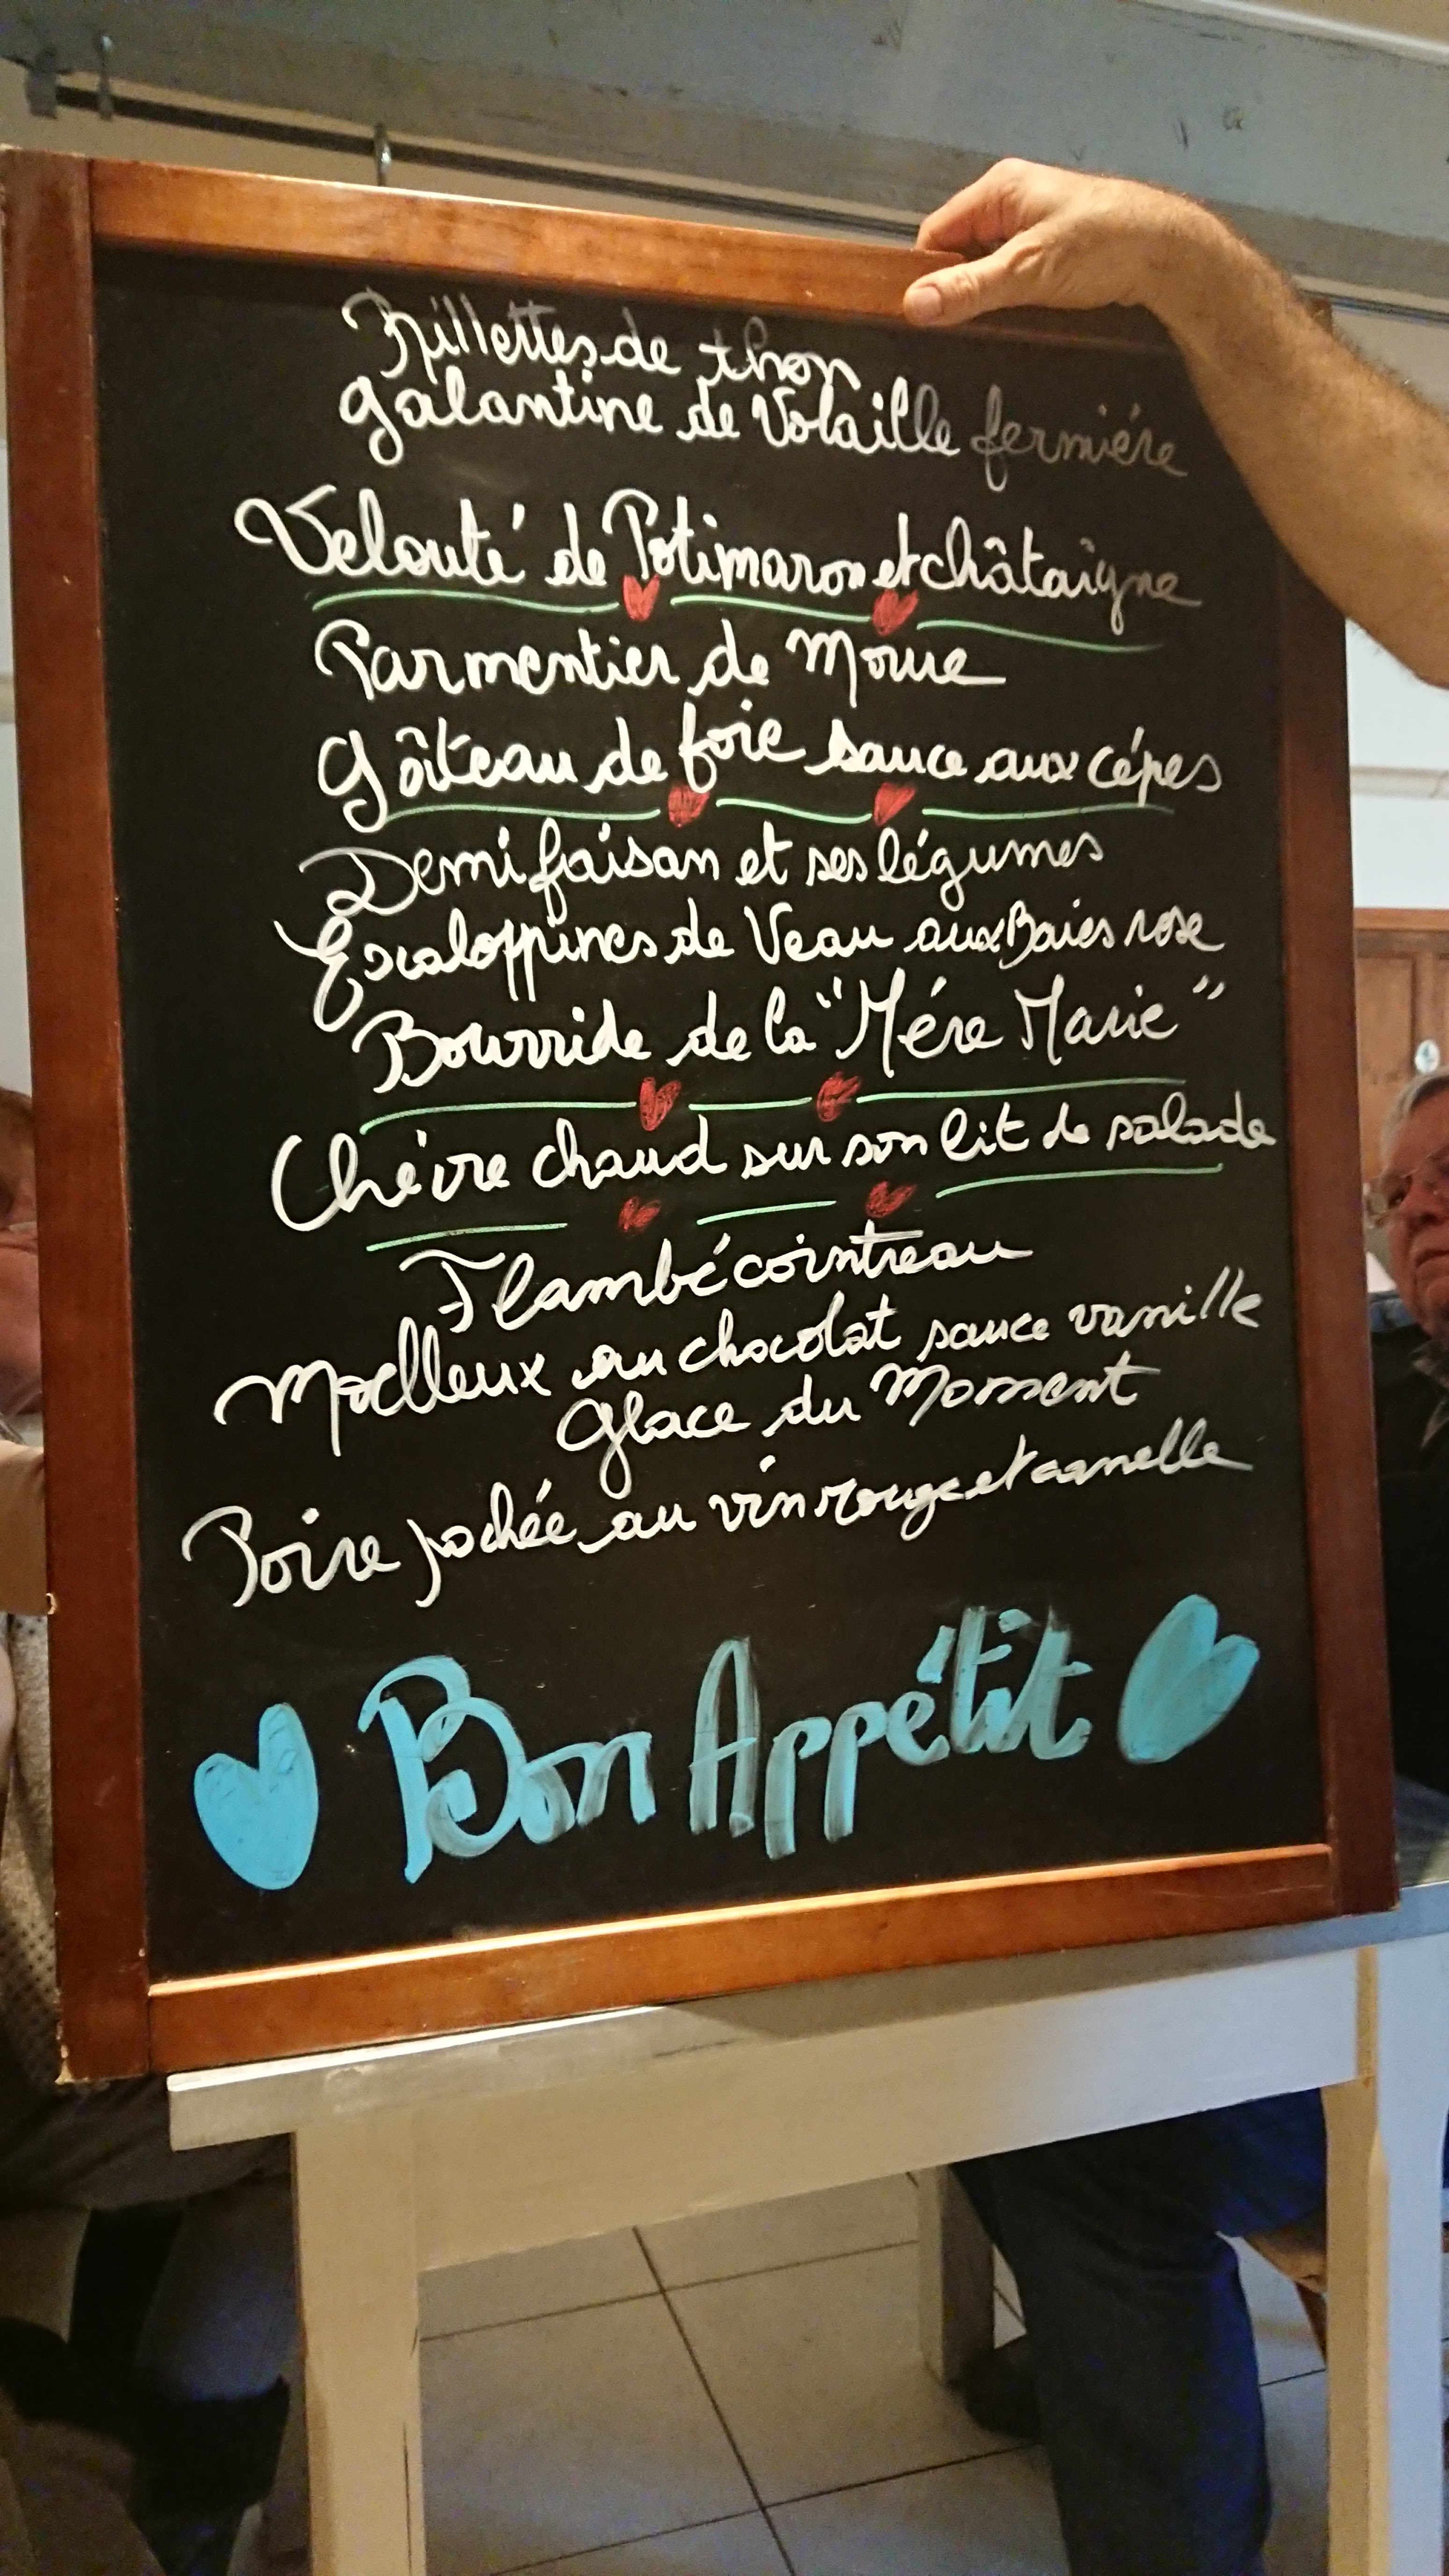 Rillettes de thon
galantine de Volaille fermiére
Velouté de Potimaron et châtaigne
Parmentier de Morue
Gâteau de foie sauce aux cépes
Demi faisan et ses légumes
Escaloppines de Veau aux Baies rose
Bourride de la "Mére Marie"
Chèvre chaud sur son lit de salade
Flambé cointreau
Moelleux au chocolat sauce vanille
Glace du Moment
Poire pochée au vin rouge et cannelle
Bon Appétit